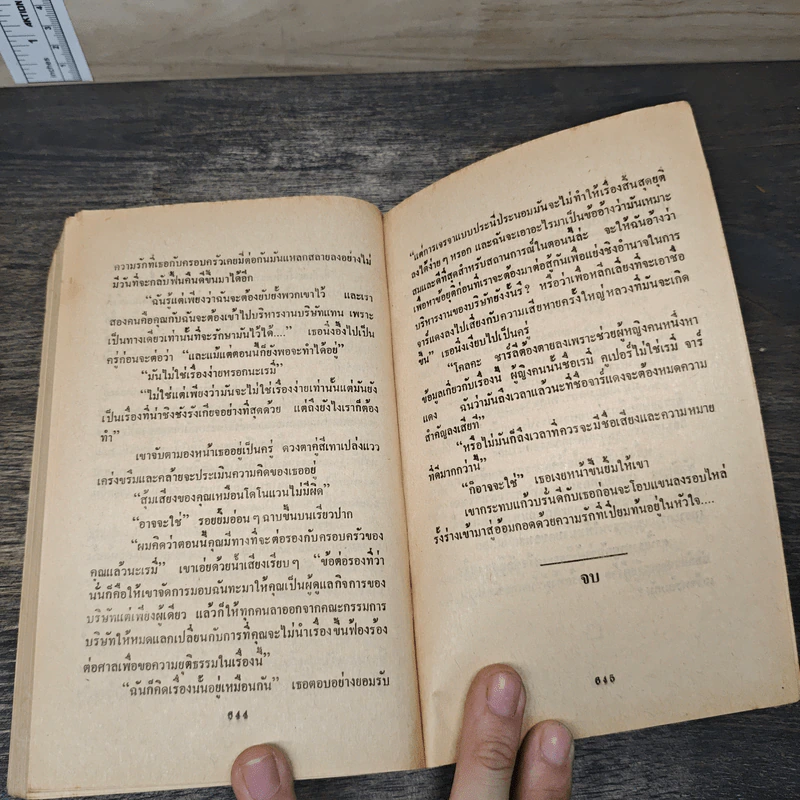 AKTION
inches 1
2
3
4
ความรักที่เธอกับครอบครัวเคยมีต่อกันมันแหลกสลายลงอย่างไม่
มีวันที่จะกลับฟื้นคืนดีขึ้นมาได้อีก
“ฉันรู้แต่เพียงว่าฉันจะต้องยับยั้งพวกเขาไว้ และเรา
สองคนคือคุณกับฉันจะต้องเข้าไปบริหารงานบริษัทแทน เพราะ
เป็นทางเดียวเท่านั้นที่จะรักษามันไว้ได้....” เธอนิ่งอึ้งไปเป็น
ครู่ก่อนจะต่อว่า “และแม้แต่ตอนนี้ก็ยังพอจะทำได้อยู่”
“มันไม่ใช่เรื่องง่ายหรอกนะเรมี่”
“ไม่ใช่แต่เพียงว่ามันจะไม่ใช่เรื่องง่ายเท่านั้นแต่มันยัง
เป็นเรื่องที่น่าชิงชังรังเกียจอย่างที่สุดด้วย แต่ถึงยังไงเราก็ต้อง
ทำ”
เขาจับตามองหน้าเธออยู่เป็นครู่ ดวงตาคู่สีเทาเปล่งแวว
เคร่งขรึมและคล้ายจะประเมินความคิดของเธออยู่
“สุ้มเสียงของคุณเหมือนโดโนแวนไม่มีผิด”
“อาจจะใช่” รอยยิ้มอ่อนๆ ฉาบขึ้นบนเรียวปาก
“ผมคิดว่าตอนนี้คุณมีทางที่จะต่อรองกับครอบครัวของ
คุณแล้วนะเรมี่” เขาเอ่ยด้วยน้ำเสียงเรียบๆ “ข้อต่อรองที่ว่า
นั้นก็คือให้เขาจัดการมอบฉันทะมาให้คุณเป็นผู้ดูแลกิจการของ
บริษัทแต่เพียงผู้เดียว แล้วก็ให้ทุกคนลาออกจากคณะกรรมการ
บริษัทให้หมดแลกเปลี่ยนกับการที่คุณจะไม่นำเรื่องขึ้นฟ้องร้อง
ต่อศาลเพื่อขอความยุติธรรมในเรื่องนี้”
“ฉันก็คิดเรื่องนั้นอยู่เหมือนกัน” เธอตอบอย่างยอมรับ
644
“แต่การเจรจาแบบประนีประนอมมันจะไม่ทำให้เรื่องสิ้นสุดยุติ
ลงได้ง่ายๆ หรอก และฉันจะเอาอะไรมาเป็นข้ออ้างว่ามันเหมาะ
สมและดีที่สุดสำหรับสถานการณ์ในตอนนี้ล่ะ จะให้ฉันอ้างว่า
เพื่อหาข้อยุติก่อนที่เราจะต้องมาต่อสู้กันเพื่อแย่งชิงอำนาจในการ
บริหารงานของบริษัทยังงั้นรึ? หรือว่าเพื่อหลีกเลี่ยงที่จะเอาชื่อ
จาร์แดงลงไปเสี่ยงกับความเสียหายครั้งใหญ่หลวงที่มันจะเกิด
ขึ้น” เธอนิ่งเงียบไปเป็นครู่
“โคลคะ ชาร์ลีต้องตายลงเพราะช่วยผู้หญิงคนหนึ่งหา
ข้อมูลเกี่ยวกับเรื่องนี้ ผู้หญิงคนนั้นชื่อเรมี่ คูเปอร์ไม่ใช่เรมี่ จาร์
แดง ฉันว่ามันถึงเวลาแล้วนะที่ชื่อจาร์แดงจะต้องหมดความ
สำคัญลงเสียที”
“หรือไม่มันก็ถึงเวลาที่ควรจะมีชื่อเสียงและความหมาย
ที่ดีมากกว่านี้”
“ก็อาจจะใช่” เธอเงยหน้าขึ้นยิ้มให้เขา
เขากระทบแก้วบรั่นดีกับเธอก่อนจะโอบแขนลงรอบไหล่
รั้งร่างเข้ามาสู่อ้อมกอดด้วยความรักที่เปี่ยมท้นอยู่ในหัวใจ....
จบ
645